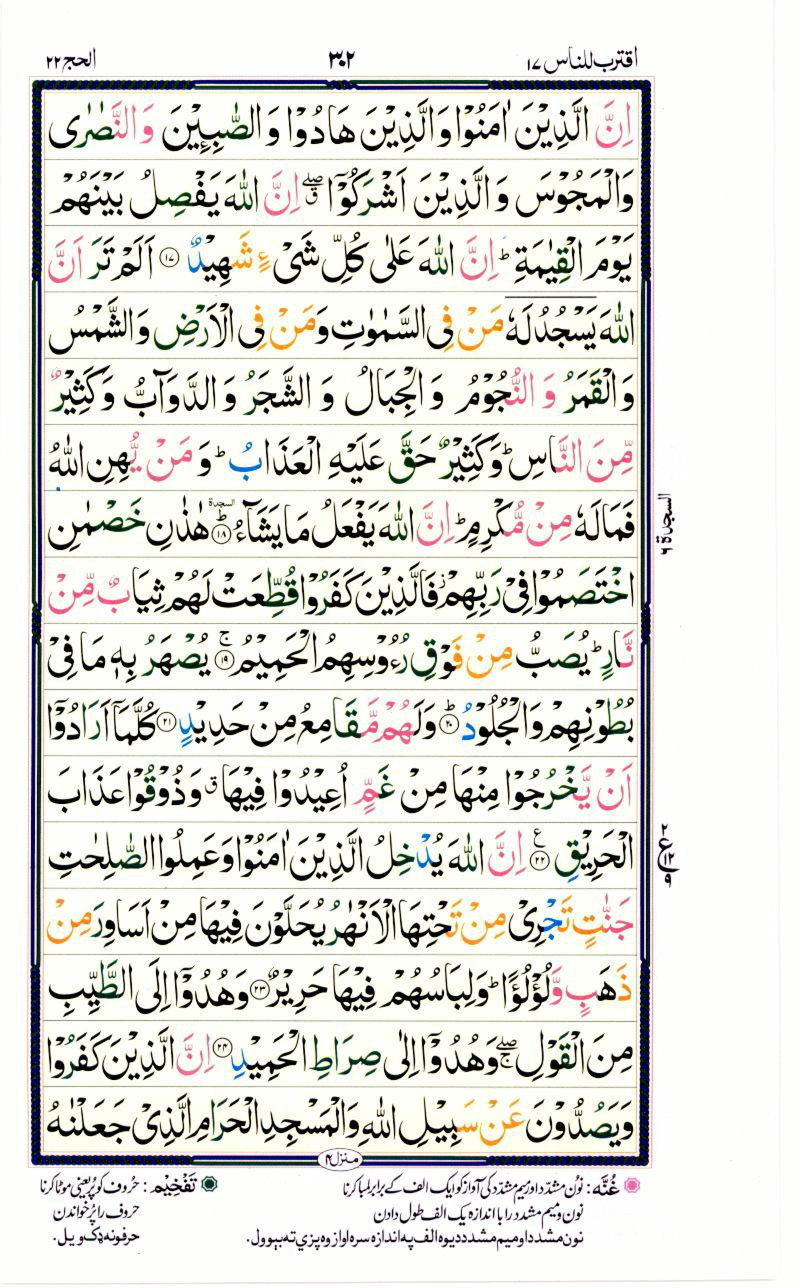 اقترب للناس ۱۷ ۳۰۲ الحج ۲۲
اِنَّ الَّذِيْنَ اٰمَنُوْا وَالَّذِيْنَ هَادُوْا وَالصّٰبِـِٕيْنَ وَالنَّصٰرٰى
وَالْمَجُوْسَ وَالَّذِيْنَ اَشْرَكُوْٓا ۖۗ اِنَّ اللّٰهَ يَفْصِلُ بَيْنَهُمْ
يَوْمَ الْقِيٰمَةِ ؕ اِنَّ اللّٰهَ عَلٰى كُلِّ شَىْءٍ شَهِيْدٌ ﴿۱۷﴾ اَلَمْ تَرَ اَنَّ
اللّٰهَ يَسْجُدُ لَهٗ مَنْ فِى السَّمٰوٰتِ وَمَنْ فِى الْاَرْضِ وَالشَّمْسُ
وَالْقَمَرُ وَالنُّجُوْمُ وَالْجِبَالُ وَالشَّجَرُ وَالدَّوَآبُّ وَكَثِيْرٌ
مِّنَ النَّاسِ ؕ وَكَثِيْرٌ حَقَّ عَلَيْهِ الْعَذَابُ ؕ وَمَنْ يُّهِنِ اللّٰهُ
فَمَا لَهٗ مِنْ مُّكْرِمٍ ؕ اِنَّ اللّٰهَ يَفْعَلُ مَا يَشَآءُ ﴿۱۸﴾ السجدة هٰذٰنِ خَصْمٰنِ
السجدة ٦
اخْتَصَمُوْا فِىْ رَبِّهِمْ ز فَالَّذِيْنَ كَفَرُوْا قُطِّعَتْ لَهُمْ ثِيَابٌ مِّنْ
نَّارٍ ؕ يُصَبُّ مِنْ فَوْقِ رُءُوْسِهِمُ الْحَمِيْمُ ﴿۱۹﴾ ج يُصْهَرُ بِهٖ مَا فِىْ
بُطُوْنِهِمْ وَالْجُلُوْدُ ﴿۲۰﴾ ؕ وَلَهُمْ مَّقَامِعُ مِنْ حَدِيْدٍ ﴿۲۱﴾ كُلَّمَآ اَرَادُوْٓا
اَنْ يَّخْرُجُوْا مِنْهَا مِنْ غَمٍّ اُعِيْدُوْا فِيْهَا ق وَذُوْقُوْا عَذَابَ
الْحَرِيْقِ ﴿۲۲﴾ ع اِنَّ اللّٰهَ يُدْخِلُ الَّذِيْنَ اٰمَنُوْا وَعَمِلُوا الصّٰلِحٰتِ
۲ ع ۱۲ ۹
جَنّٰتٍ تَجْرِىْ مِنْ تَحْتِهَا الْاَنْهٰرُ يُحَلَّوْنَ فِيْهَا مِنْ اَسَاوِرَ مِنْ
ذَهَبٍ وَّلُؤْلُؤًا ؕ وَلِبَاسُهُمْ فِيْهَا حَرِيْرٌ ﴿۲۳﴾ وَهُدُوْٓا اِلَى الطَّيِّبِ
مِنَ الْقَوْلِ ۖۚ وَهُدُوْٓا اِلٰى صِرَاطِ الْحَمِيْدِ ﴿۲۴﴾ اِنَّ الَّذِيْنَ كَفَرُوْا
وَيَصُدُّوْنَ عَنْ سَبِيْلِ اللّٰهِ وَالْمَسْجِدِ الْحَرَامِ الَّذِىْ جَعَلْنٰهُ
منزل ۴
غُنَّه: نون مشدد اور میم مشدد کی آواز کو ایک الف کے برابر لمبا کرنا تَفْخِيْم: حُروف کو پُر یعنی موٹا کرنا
نون و میم مشدد را با اندازه یک الف طول دادن حروف را پُر خواندن
نون مشدد او میم مشدد دیوه الف په اندازه سره اواز وه پزې ته بېوول. حرفونه ډک ویل.